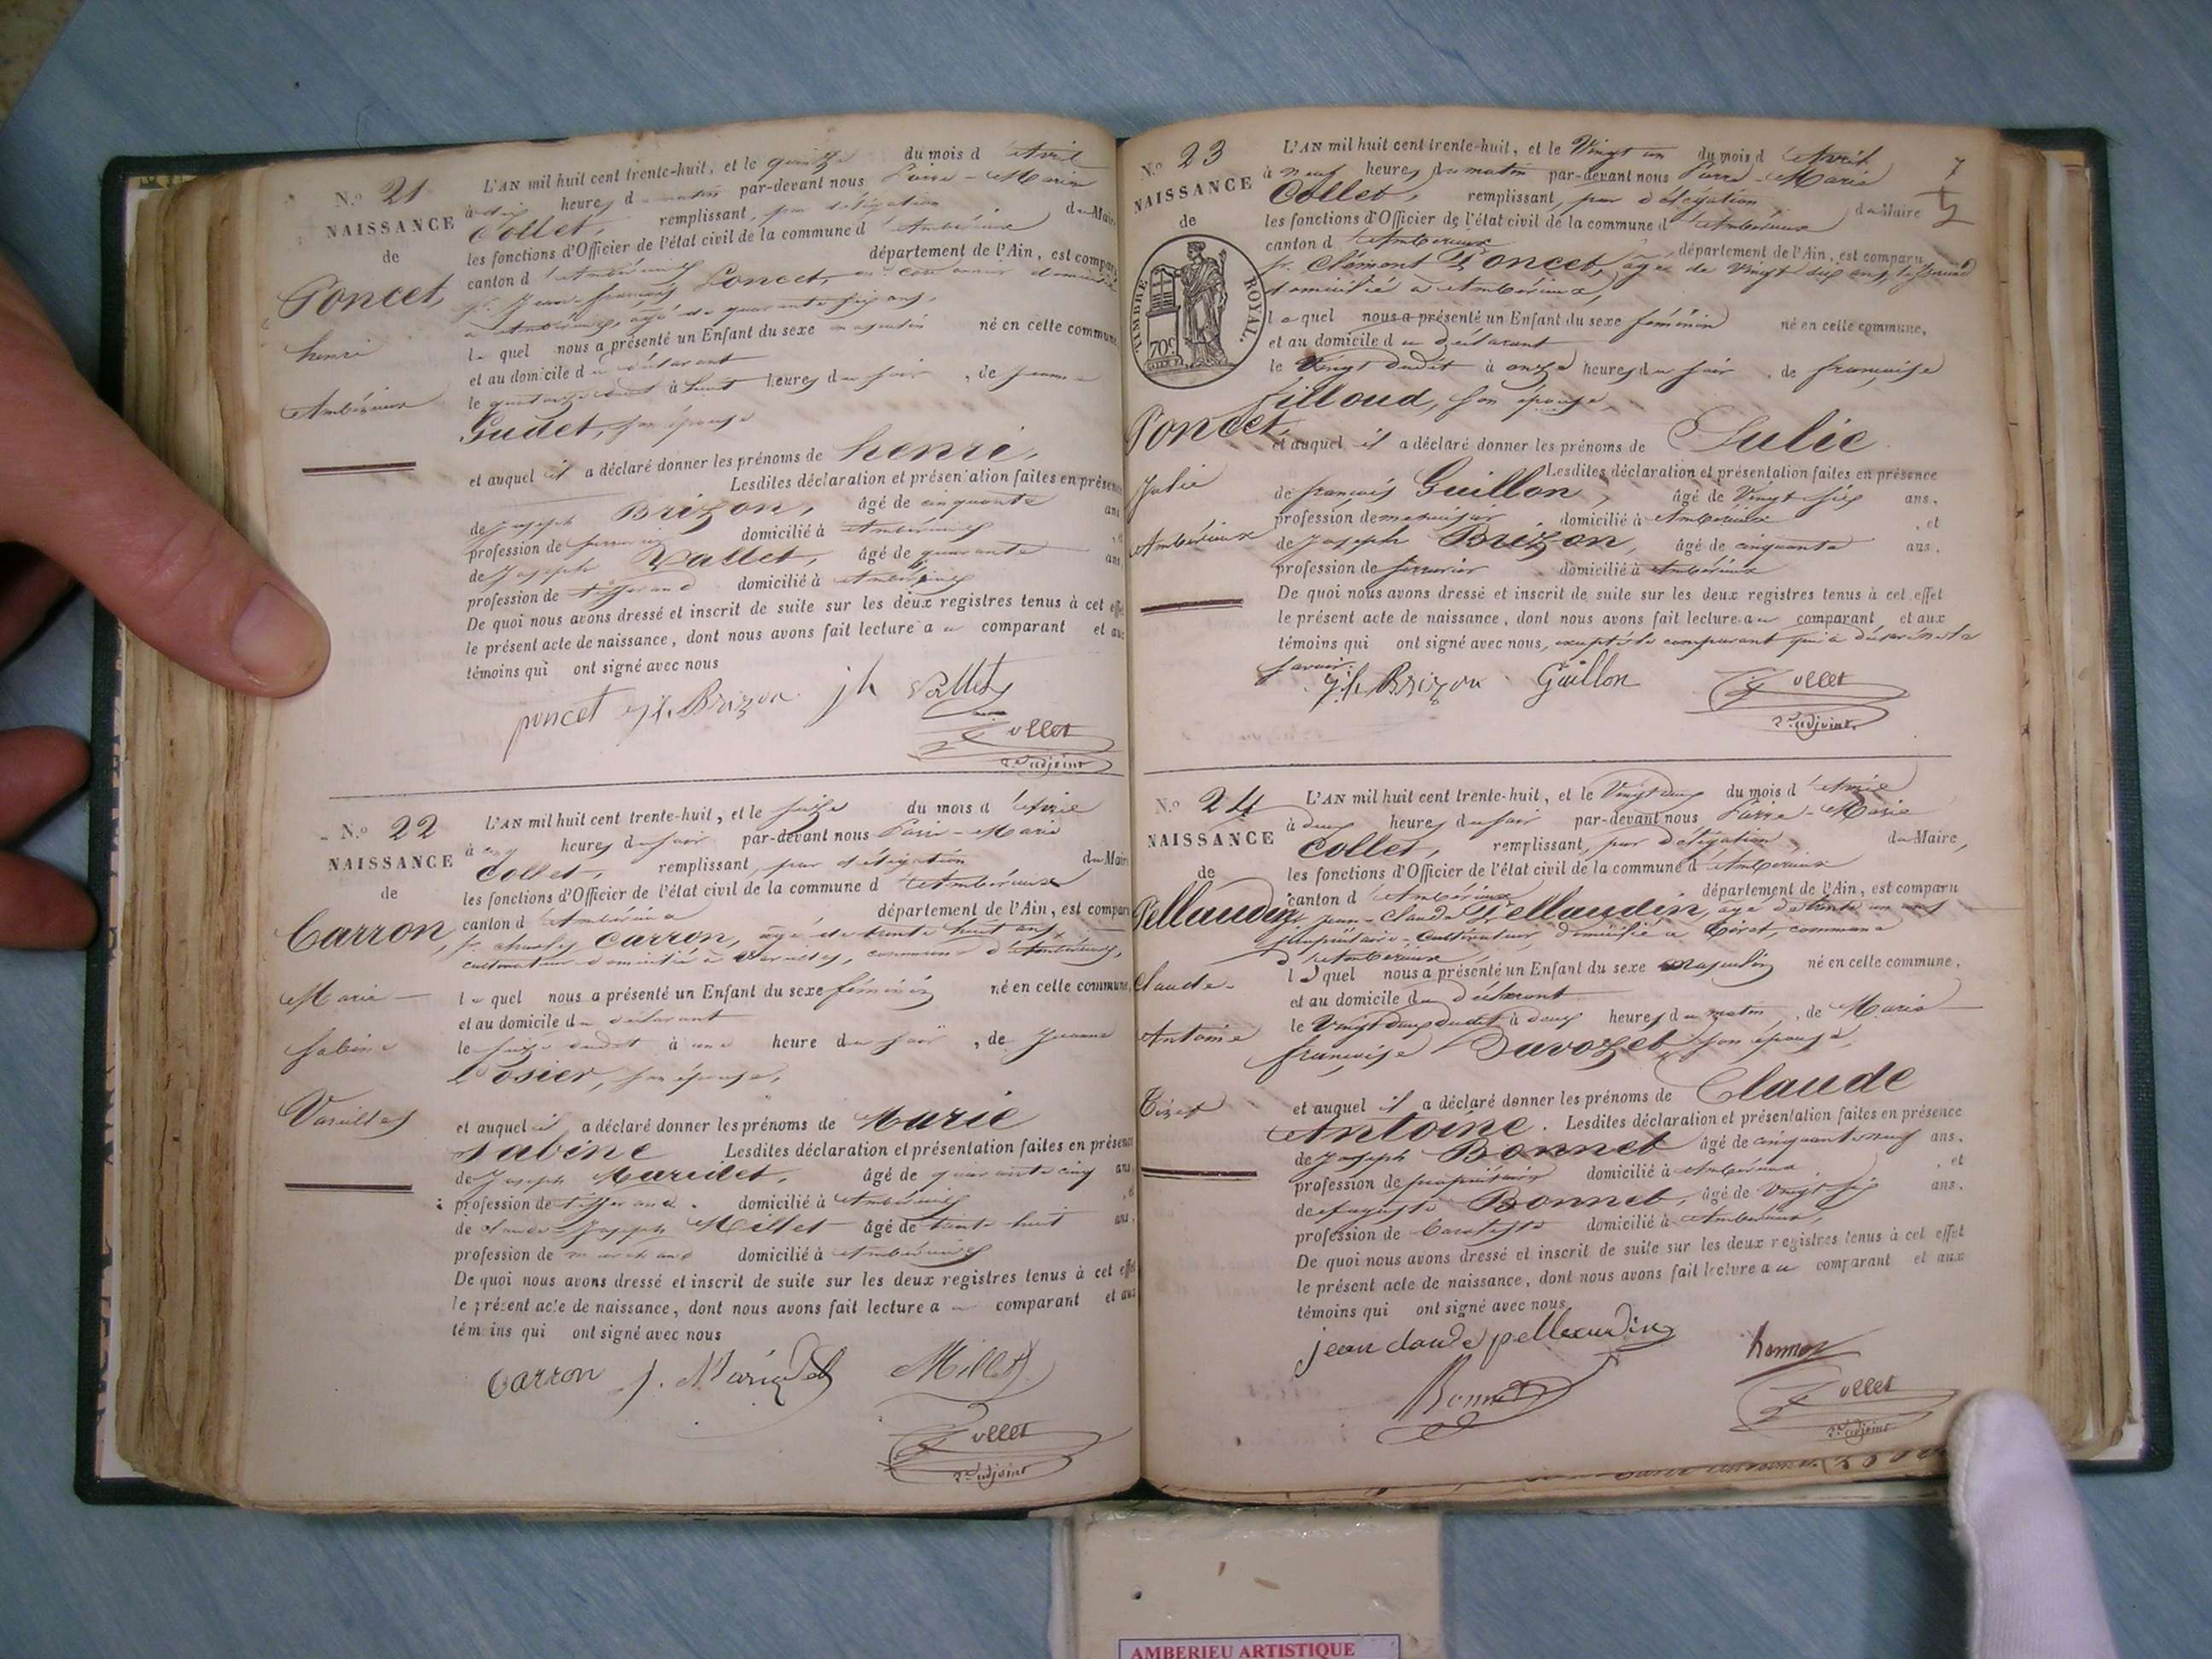 N.º 21
NAISSANCE
de
Poncet,
henri
Ambérieux
L'AN mil huit cent trente-huit, et le quinze du mois d'Avril
à dix heures du matin par-devant nous Pierre-Marie
Collet, remplissant, par délégation du Maire
les fonctions d'Officier de l'état civil de la commune d'Ambérieux
canton d'Ambérieux département de l'Ain, est comparu
sr. Jean-françois Poncet, domicilié
à Ambérieux, âgé de quarante six ans,
lequel nous a présenté un Enfant du sexe masculin né en cette commune,
et au domicile du déclarant
le quatorze dudit à huit heures du soir, de Jeanne
Gudet, son épouse
et auquel il a déclaré donner les prénoms de henri,
Lesdites déclaration et présentation faites en présence
de Joseph Brizon, âgé de cinquante ans
profession de serrurier domicilié à Ambérieux, et
de Joseph Vallet, âgé de quarante ans,
profession de tisserand domicilié à Ambérieux
De quoi nous avons dressé et inscrit de suite sur les deux registres tenus à cet effet
le présent acte de naissance, dont nous avons fait lecture au comparant et aux
témoins qui ont signé avec nous
poncet jh. Brizon jh Vallet
Collet
2e adjoint
N.º 22
NAISSANCE
de
Carron,
Marie
Sabine
Vareilles
L'AN mil huit cent trente-huit, et le seize du mois d'Avril
à cinq heures du soir par-devant nous Pierre-Marie
Collet, remplissant, par délégation du Maire
les fonctions d'Officier de l'état civil de la commune d'Ambérieux
canton d'Ambérieux département de l'Ain, est comparu
sr. charles Carron, âgé de trente huit ans,
cultivateur domicilié à Vareilles, commune d'Ambérieux,
lequel nous a présenté un Enfant du sexe féminin né en cette commune,
et au domicile du déclarant
le seize dudit à une heure du soir, de Jeanne
Losier, son épouse,
et auquel il a déclaré donner les prénoms de Marie
Sabine Lesdites déclaration et présentation faites en présence
de Joseph Maridet, âgé de quarante cinq ans
profession de tisserand domicilié à Ambérieux, et
de claude-Joseph Millet âgé de trente huit ans,
profession de marchand domicilié à Ambérieux
De quoi nous avons dressé et inscrit de suite sur les deux registres tenus à cet effet
le présent acte de naissance, dont nous avons fait lecture au comparant et aux
témoins qui ont signé avec nous
Carron j. Maridet Millet
Collet
2e adjoint
7
N.º 23
NAISSANCE
de
TIMBRE ROYAL.
70c
Poncet,
Julie
Ambérieux
L'AN mil huit cent trente-huit, et le Vingt un du mois d'Avril
à neuf heures du matin par-devant nous Pierre-Marie
Collet, remplissant, par délégation, du Maire
les fonctions d'Officier de l'état civil de la commune d'Ambérieux
canton d'Ambérieux département de l'Ain, est comparu
sr. Clément Poncet, âgé de Vingt six ans, tisserand
domicilié à Ambérieux,
lequel nous a présenté un Enfant du sexe féminin né en cette commune,
et au domicile du déclarant
le Vingt dudit à onze heures du soir, de françoise
Jilloud, son épouse,
et auquel il a déclaré donner les prénoms de Julie
Lesdites déclaration et présentation faites en présence
de françois Guillon, âgé de Vingt six ans,
profession de menuisier domicilié à Ambérieux, et
de Joseph Brizon, âgé de cinquante ans,
profession de serrurier domicilié à Ambérieux
De quoi nous avons dressé et inscrit de suite sur les deux registres tenus à cet effet
le présent acte de naissance, dont nous avons fait lecture au comparant et aux
témoins qui ont signé avec nous, excepté le comparant qui a déclaré ne le
savoir.
jh. Brizon Guillon Collet
2e adjoint
N.º 24
NAISSANCE
de
Pellaudin,
Claude-
Antoine
Tiret
L'AN mil huit cent trente-huit, et le Vingt deux du mois d'Avril
à deux heures du soir par-devant nous Pierre-Marie
Collet, remplissant, par délégation, du Maire,
les fonctions d'Officier de l'état civil de la commune d'Ambérieux
canton d'Ambérieux département de l'Ain, est comparu
sr. Jean-Claude Pellaudin, âgé de trente un ans
propriétaire-Cultivateur, domicilié à Tiret, commune
d'Ambérieux,
lequel nous a présenté un Enfant du sexe masculin né en cette commune,
et au domicile du déclarant
le Vingt deux dudit à deux heures du matin, de Marie
françoise Davozet son épouse,
et auquel il a déclaré donner les prénoms de Claude
Antoine. Lesdites déclaration et présentation faites en présence
de Joseph Bonnet âgé de cinquante neuf ans,
profession de propriétaire domicilié à Ambérieux, et
de auguste Bonnet, âgé de Vingt six ans,
profession de domicilié à Ambérieux,
De quoi nous avons dressé et inscrit de suite sur les deux registres tenus à cet effet
le présent acte de naissance, dont nous avons fait lecture au comparant et aux
témoins qui ont signé avec nous
jean claude pellaudin Bonnet
Bonnet Collet
2e adjoint
AMBERIEU ARTISTIQUE